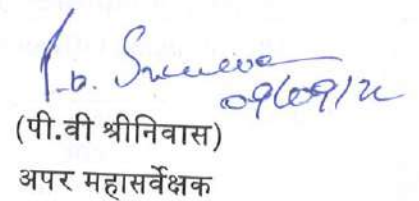 P.V. Srinivas
09/09/22
(पी.वी श्रीनिवास)
अपर महासर्वेक्षक